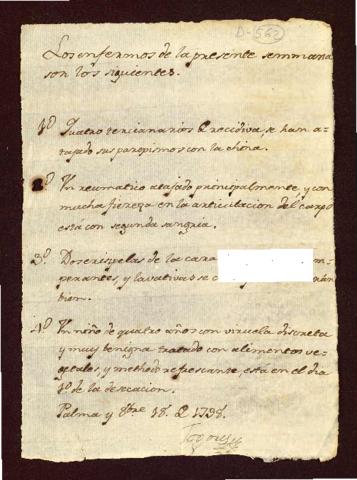 D-562
Los enfermos de la presente semmana
son los siguientes.
1º Quatro tercianarios & recidiva, se han a-
tajado sus paropismos con la china.
2º Un reumatico atajado principalmente, y con
mucha fiereza en la articulacion del carpo
esta con segunda sangria.
3º Dos erisipelas de la cara
perantes, y lavativas se
tien.
4º Un niño de quatro años con viruela discreta
y muy benigna tratado con alimentos ve-
getales, y methodo refrescante, está en el dia
1º de la desecacion.
Palma y 8bre 18. & 1798.